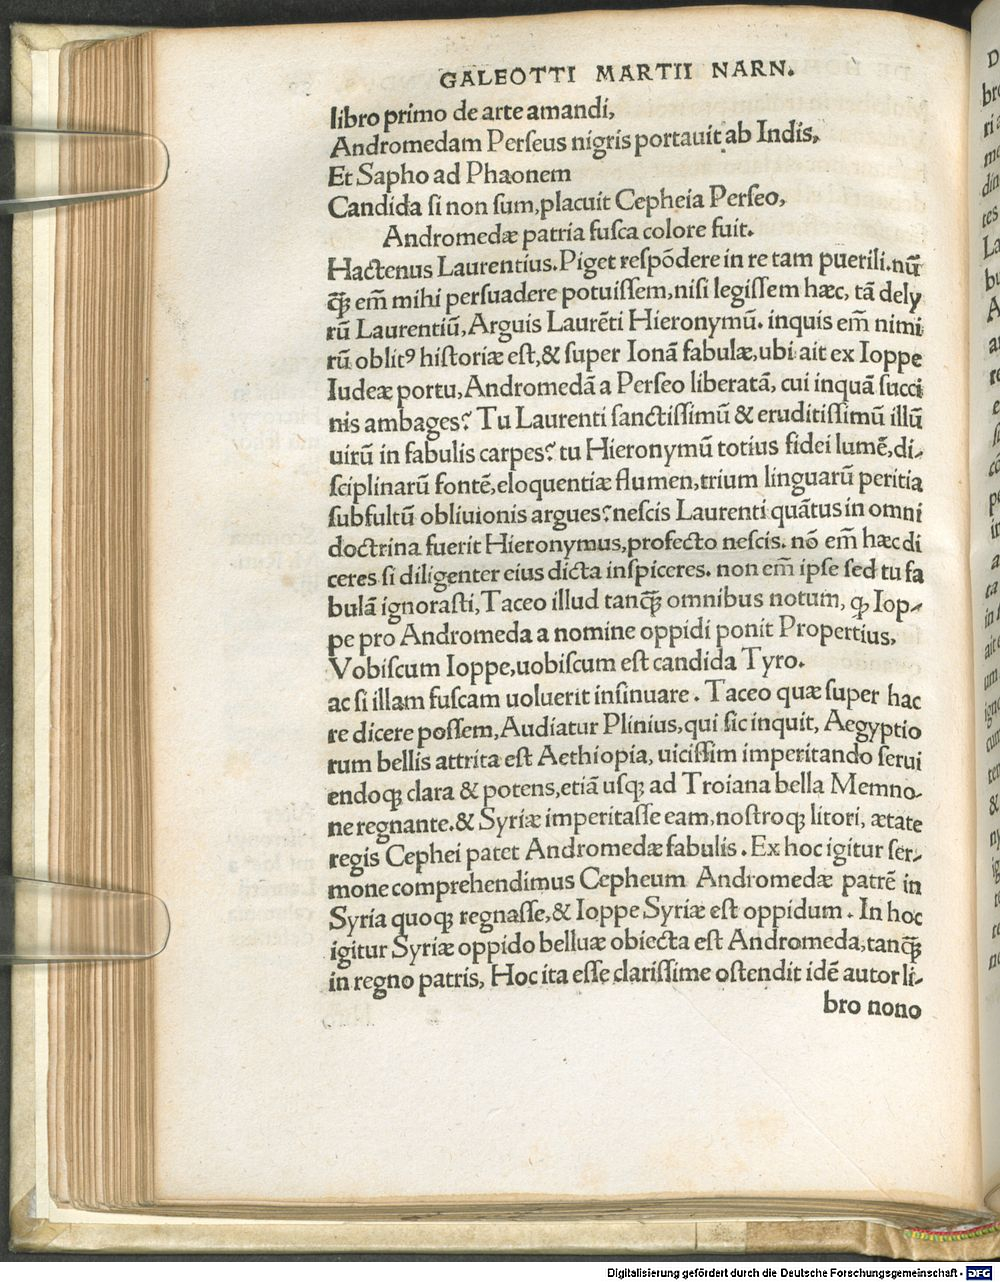 GALEOTTI MARTII NARN.
libro primo de arte amandi,
Andromedam Perſeus nigris portauit ab Indis,
Et Sapho ad Phaonem
Candida ſi non ſum, placuit Cepheia Perſeo,
Andromedæ patria fuſca colore fuit.
Hactenus Laurentius. Piget reſpōdere in re tam puerili. nū
ꝗ̃ em̄ mihi perſuadere potuiſſem, niſi legiſſem hæc, tā dely
rū Laurentiū, Arguis Laurēti Hieronymū. inquis em̄ nimi
rū oblitꝰ hiſtoriæ eſt, & ſuper Ionā fabulæ, ubi ait ex Ioppe
Iudeæ portu, Andromedā a Perſeo liberatā, cui inquā ſucci
nis ambages? Tu Laurenti ſanctiſſimū & eruditiſſimū illū
uirū in fabulis carpes? tu Hieronymū totius fidei lumē, di-
ſciplinarū fontē, eloquentiæ flumen, trium linguarū peritia
ſubfultū obliuionis argues? neſcis Laurenti quātus in omni
doctrina fuerit Hieronymus, profecto neſcis. nō em̄ hæc di
ceres ſi diligenter eius dicta inſpiceres. non em̄ ipſe ſed tu fa
bulā ignoraſti, Taceo illud tanꝗ̃ omnibus notum, ꝙ Iop-
pe pro Andromeda a nomine oppidi ponit Propertius,
Vobiſcum Ioppe, uobiſcum eſt candida Tyro.
ac ſi illam fuſcam uoluerit inſinuare. Taceo quæ ſuper hac
re dicere poſſem, Audiatur Plinius, qui ſic inquit, Aegyptio
rum bellis attrita eſt Aethiopia, uiciſſim imperitando ſerui
endoq; clara & potens, etiā uſq; ad Troiana bella Memno-
ne regnante. & Syriæ imperitaſſe eam, noſtroq; litori, ætate
regis Cephei patet Andromedæ fabulis. Ex hoc igitur ſer-
mone comprehendimus Cepheum Andromedæ patrē in
Syria quoq; regnaſſe, & Ioppe Syriæ eſt oppidum. In hoc
igitur Syriæ oppido belluæ obiecta eſt Andromeda, tanꝗ̃
in regno patris, Hoc ita eſſe clariſſime oſtendit idē autor li-
bro nono
Digitalisierung gefördert durch die Deutsche Forschungsgemeinschaft - DFG